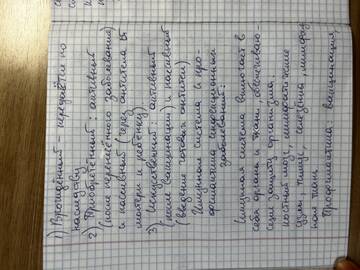 1) Врождённый - передаётся по
наследству
2) Приобретённый: активный
(после перенесённого заболевания)
и пассивный (через антитела от
матери к ребёнку)
3) Искусственный: активный
(после вакцинации) и пассивный
(введение готовых антител)
Иммунная система и про-
филактика инфекционных
заболеваний:
Иммунная система включает в
себя органы и ткани, обеспечиваю-
щие защиту организма,
костный мозг, лимфатические
узлы, тимус, селезёнка, лимфоид
ная ткань
Профилактика, вакцинация